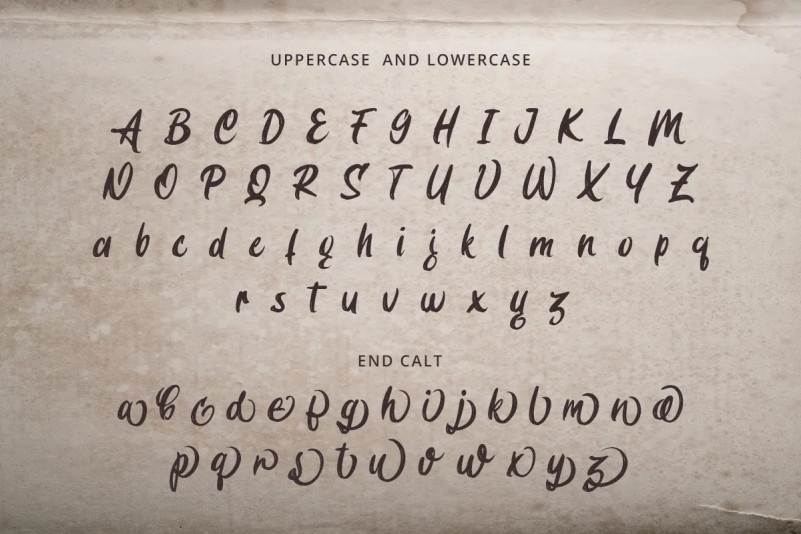 UPPERCASE AND LOWERCASE
A B C D E F G H I J K L M
N O P Q R S T U V W X Y Z
a b c d e f g h i j k l m n o p q
r s t u v w x y z
END CALT
a b c d e f g h i j k l m n o
p q r s t u v w x y z